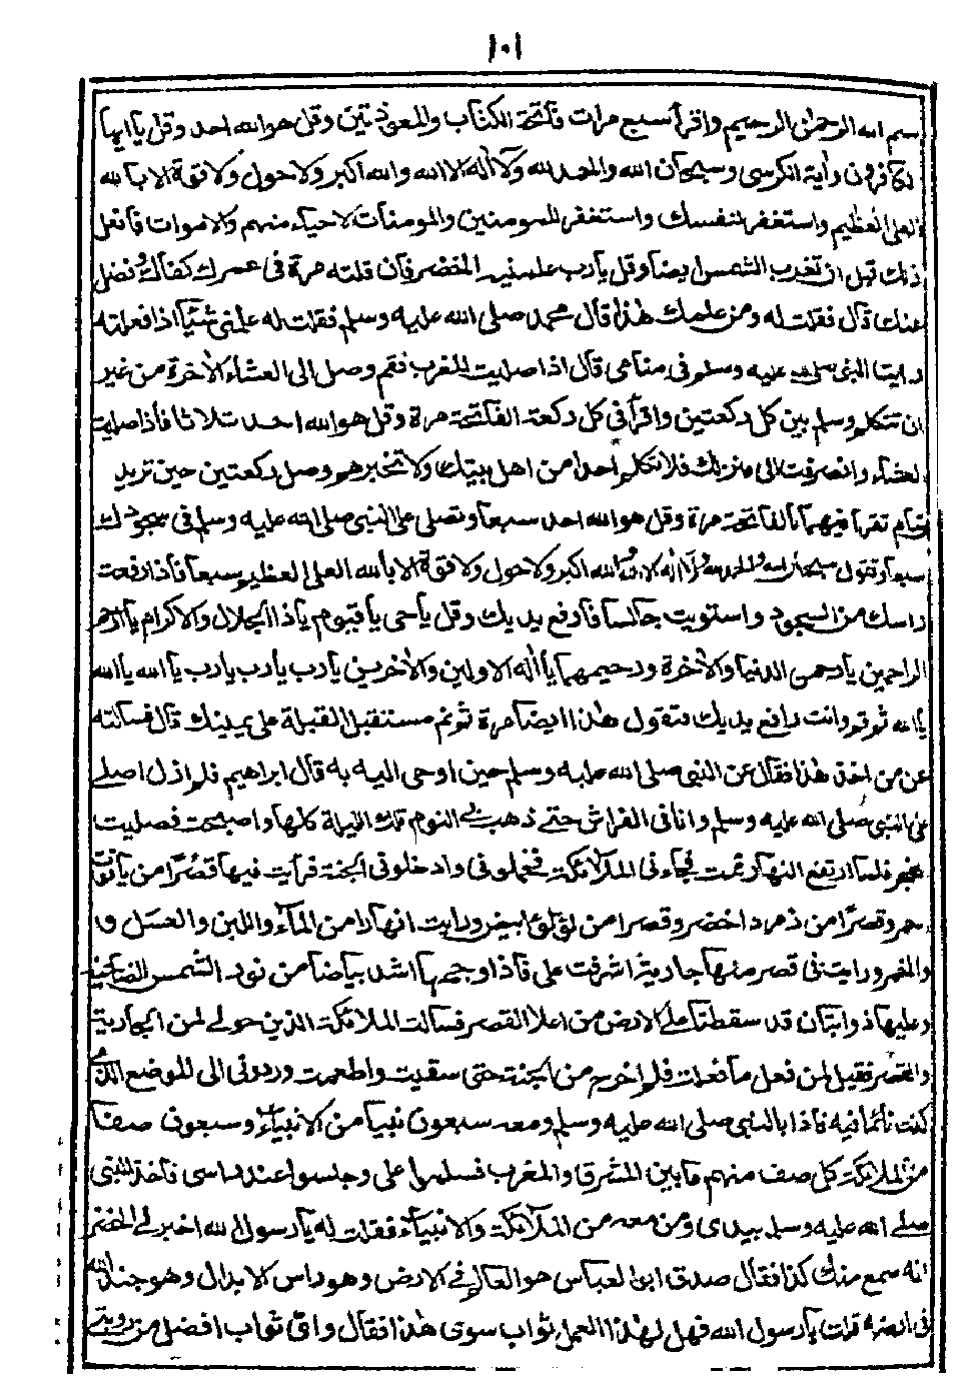 ١٠١
بسم الله الرحمن الرحيم واقرأ سبع مرات فاتحة الكتاب والمعوذتين وقل هو الله احد وقل ياايها
الكافرون واية الكرسى وسبحان الله والحمد لله ولا اله الا الله والله اكبر ولا حول ولا قوة الا بالله
العلى العظيم واستغفر لنفسك واستغفر للمومنين والمومنات الاحياء منهم والاموات فافعل
ذلك قبل ان تغرب الشمس ايضا وقل يارب علمنيه الخضر فان قلته مرة فى عمرك كفاك وفضل
عنك قال فقلت له ومن علمك هذا قال محمد صلى الله عليه وسلم فقلت له علمنى شيئا اذا فعلته
رايت النبى صلى الله عليه وسلم فى منامى قال اذا صليت المغرب فقم وصل الى العشاء الاخرة من غير
ان تتكلم وسلم بين كل ركعتين واقرأ فى كل ركعة الفاتحة مرة وقل هو الله احد ثلاثا فاذا صليت
العشاء وانصرفت الى منزلك فلا تكلم احدا من اهل بيتك ولا تخبرهم وصل ركعتين حين تريد
تنام تقرأ فيهما بالفاتحة مرة وقل هو الله احد سبعا وتصلى على النبى صلى الله عليه وسلم فى سجودك
سبعا وتقول سبحان الله والحمد لله ولا اله الا الله والله اكبر ولا حول ولا قوة الا بالله العلى العظيم سبعا فاذا رفعت
راسك من السجود واستويت جالسا فارفع يديك وقل ياحى ياقيوم ياذا الجلال والاكرام ياارحم
الراحمين يارحمن الدنيا والاخرة ورحيمهما يااله الاولين والاخرين يارب يارب يارب ياالله ياالله
ياالله ثم قم وانت رافع يديك فتقول هذا ايضا مرة ثم نم مستقبل القبلة على يمينك قال فسالته
عن من اخذ هذا فقال عن النبى صلى الله عليه وسلم حين اوحى اليه به قال ابراهيم فلم ازل اصلى
على النبى صلى الله عليه وسلم وانا فى الفراش حتى ذهب النوم تلك الليلة كلها واصبحت فصليت
الفجر فلما ارتفع النهار نمت فجاءنى الملائكة فحملونى وادخلونى الجنة فرأيت فيها قصرا من ياقوت
احمر وقصرا من زمرد اخضر وقصرا من لؤلؤ ابيض ورايت انهارا من الماء واللبن والعسل و
والخمر ورايت فى قصر منها جارية اشرفت على فاذا وجهها اشد بياضا من نور الشمس الضاحية
وعليها ذوابتان قد سقطتا على الارض من اعلا القصر فسالت الملائكة الذين حولى لمن الجارية
والقصر فقيل لمن فعل ما فعلت فلم اخرج من الجنة حتى سقيت واطعمت وردونى الى الموضع الذى
كنت نائما فيه فاذا بالنبى صلى الله عليه وسلم ومعه سبعون نبيا من الانبياء وسبعون صفا
من الملائكة كل صف منهم مابين المشرق والمغرب فسلموا على وجلسوا عند راسى فاخذ النبى
صلى الله عليه وسلم بيدى ومن معه من الملائكة والانبياء فقلت له يارسول الله اخبرنى الخضر
انه سمع منك كذا فقال صدق ابو العباس هو العالم فى الارض وهو راس الابدال وهو جند الله
فى ارضه قلت يارسول الله فهل لهذا العمل ثواب سوى هذا فقال واى ثواب افضل من رويتى